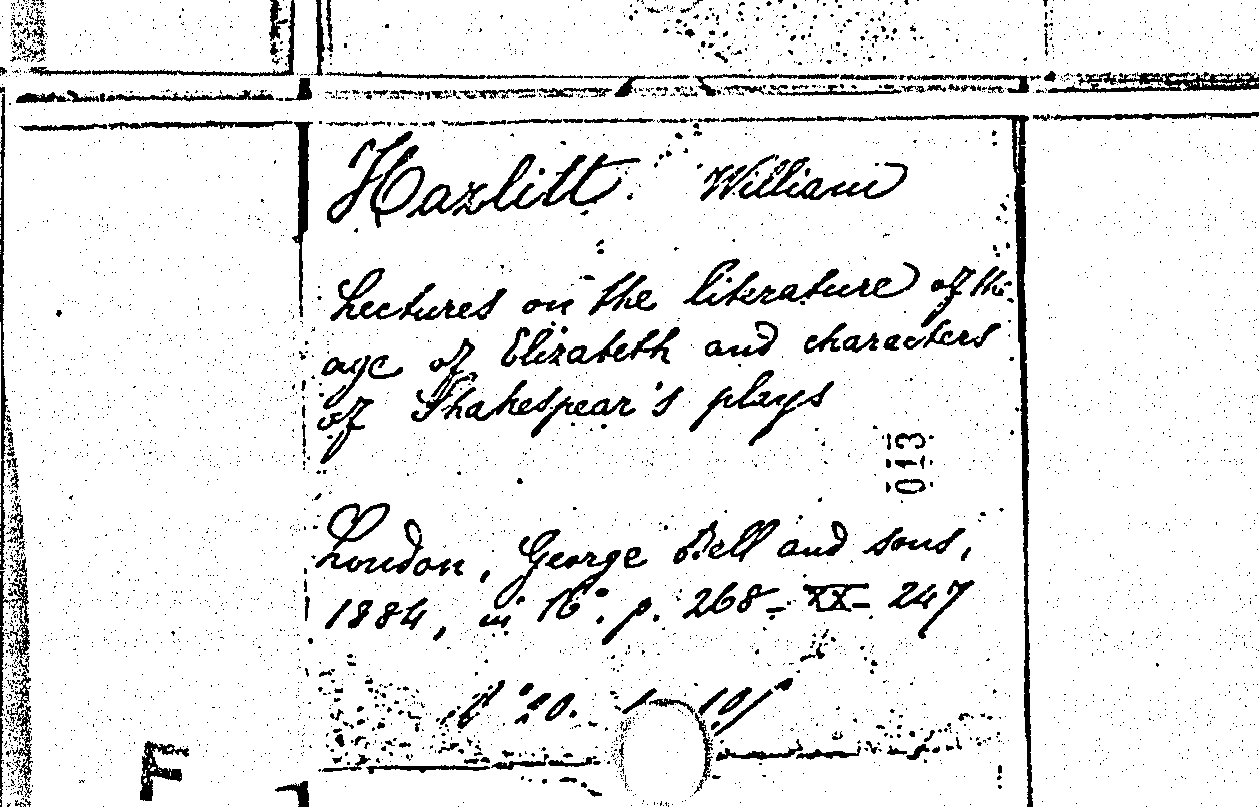 Hazlitt. William
Lectures on the literature of the
age of Elizabeth and characters
of Shakespear's plays
013
London, George Bell and sons,
1884, in 16°. p. 268-XX-247
20.
F